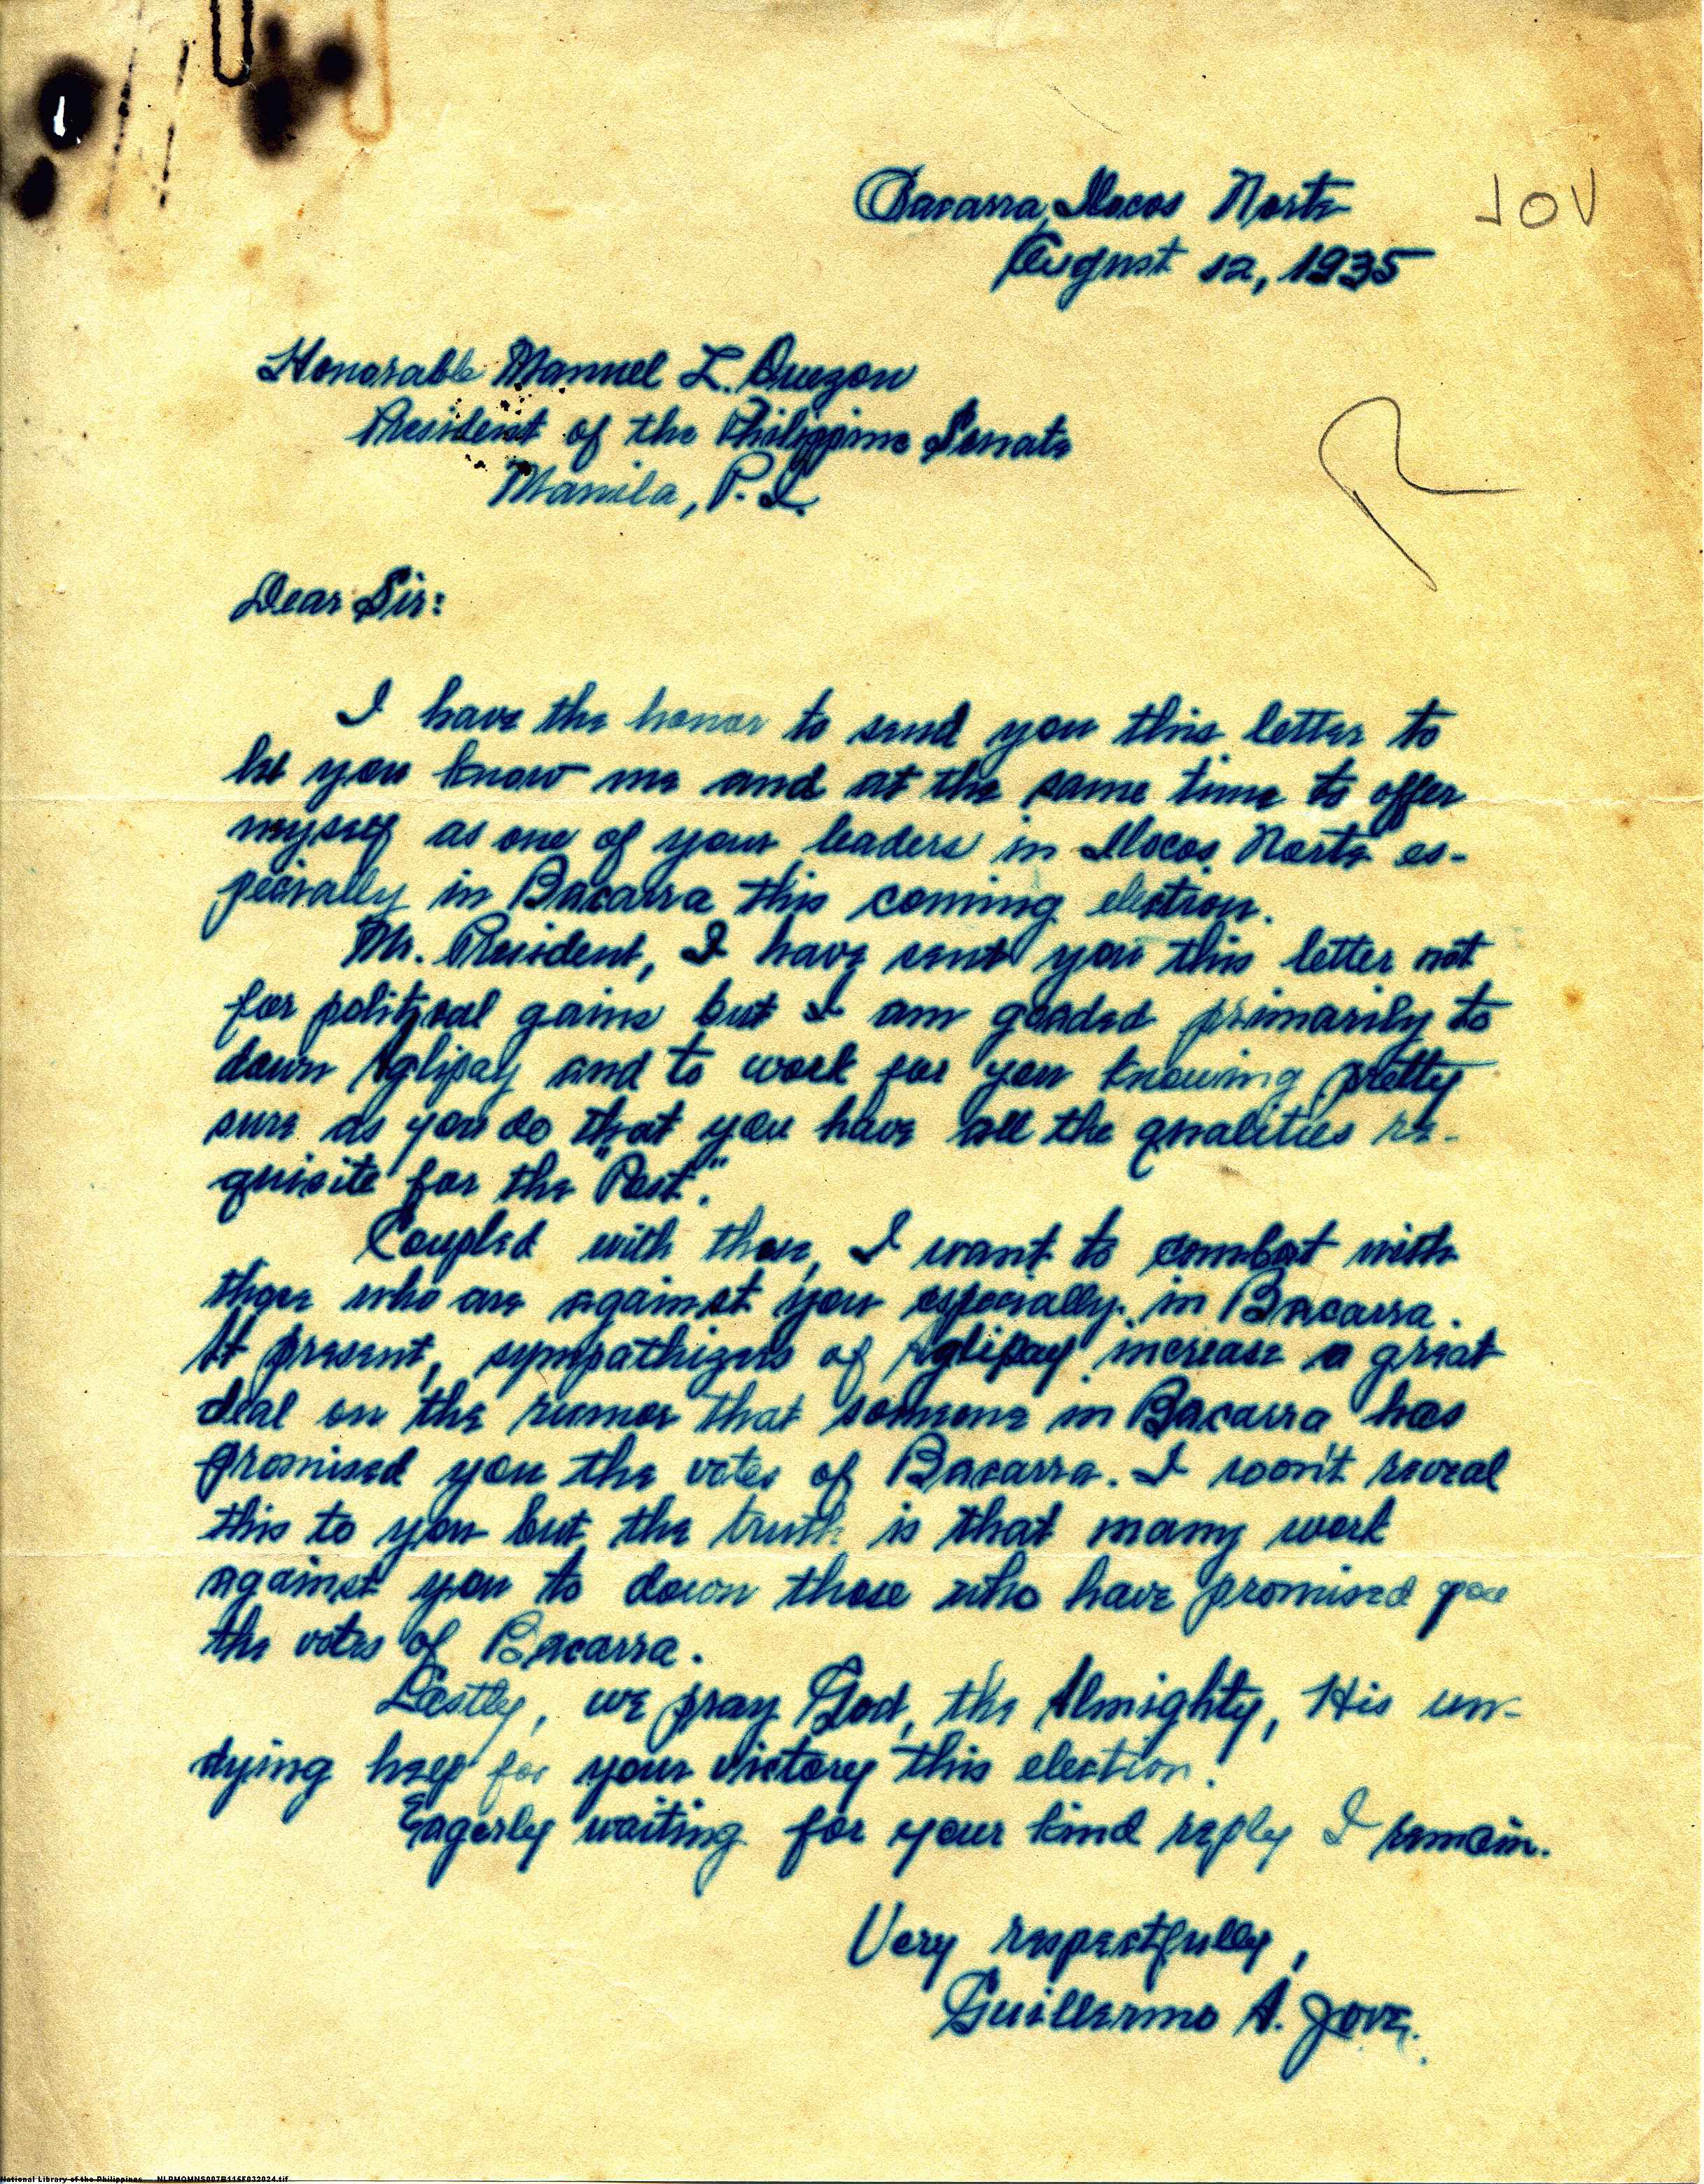 Bacarra, Ilocos Norte
JOV
August 12, 1935
Honorable Manuel L. Quezon
President of the Philippine Senate
Manila, P. I.
Dear Sir:
I have the honor to send you this letter to
let you know me and at the same time to offer
myself as one of your leaders in Ilocos Norte es-
pecially in Bacarra this coming election.
Mr. President, I have sent you this letter not
for political gains but I am goaded primarily to
down Aglipay and to work for you knowing pretty
sure as you do that you have all the qualities re-
quisite for the "Post".
Coupled with these, I want to combat with
those who are against you especially in Bacarra.
At present, sympathizers of Aglipay increase a great
deal on the rumor that someone in Bacarra has
promised you the votes of Bacarra. I won't reveal
this to you but the truth is that many work
against you to down those who have promised you
the votes of Bacarra.
Lastly, we pray God, the Almighty, His un-
dying help for your victory this election.
Eagerly waiting for your kind reply I remain.
Very respectfully,
Guillermo A. Jove.
National Library of the Philippines NLPMQMNS007B115F032024.tif